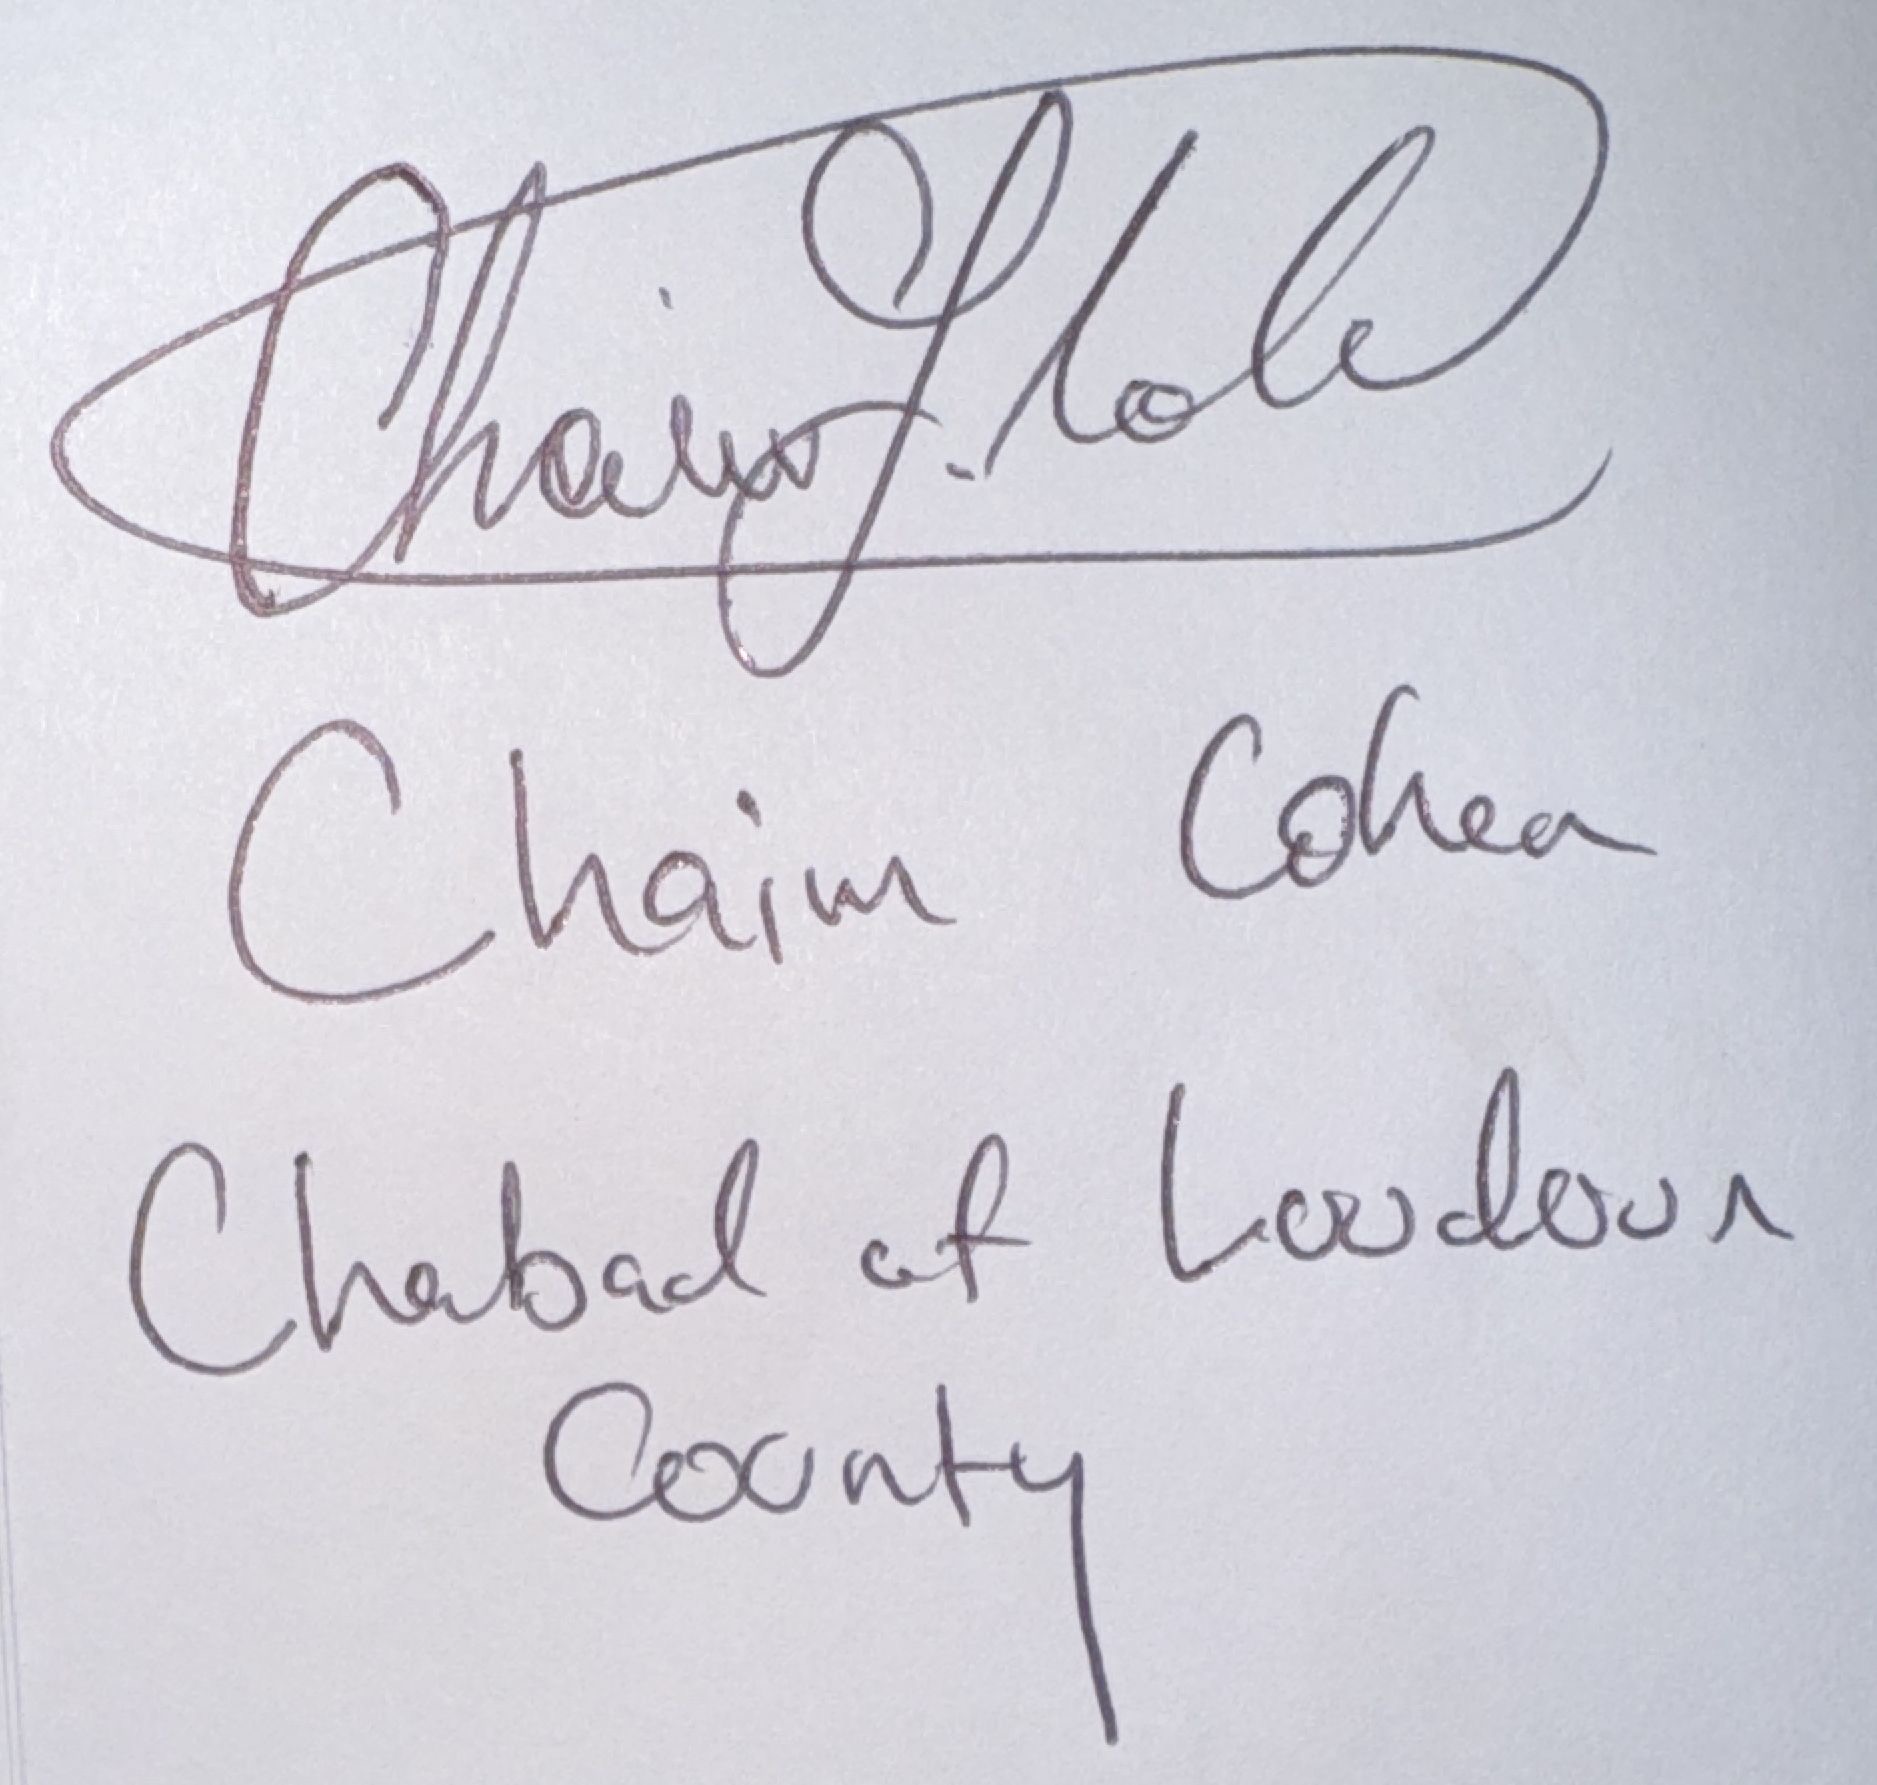 Chaim Y. Cohen
Chaim Cohen
Chabad of Loudoun
County